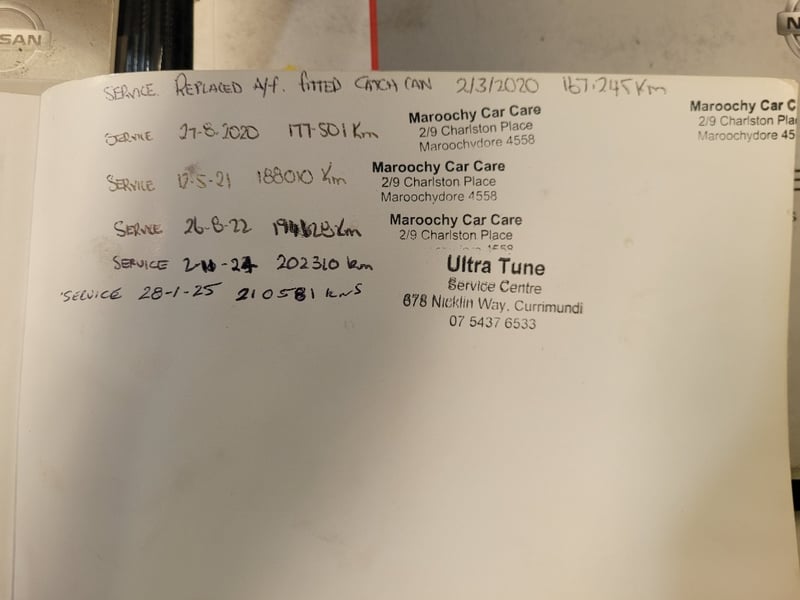 SSAN
N
SERVICE REPLACED A/F. FITTED CATCH CAN 2/3/2020 167.245 Km
Maroochy Car C
2/9 Charlston Pla
Maroochydore 45
SERVICE 27-8-2020 177-501 Km
Maroochy Car Care
2/9 Charlston Place
Maroochydore 4558
SERVICE 12-5-21 188010 Km
Maroochy Car Care
2/9 Charlston Place
Maroochydore 4558
SERVICE 26-8-22 Km
Maroochy Car Care
2/9 Charlston Place
SERVICE 202310 km
Ultra Tune
Service Centre
678 Nicklin Way, Currimundi
07 5437 6533
SERVICE 28-1-25 210581 kms